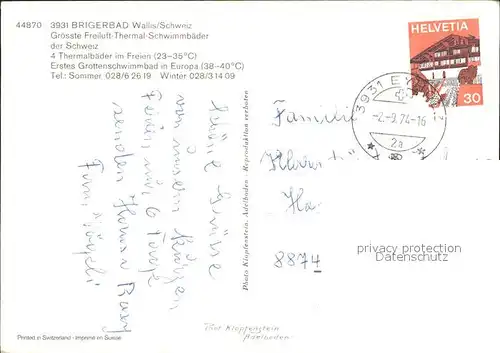 44870 3931 BRIGERBAD Wallis/Schweiz
Grösste Freiluft-Thermal-Schwimmbäder
der Schweiz
4 Thermalbäder im Freien (23-35°C)
Erstes Grottenschwimmbad in Europa (38-40°C)
Tel.: Sommer 028/6 26 19 Winter 028/3 14 09
Schöne Grüsse
von unsern kurzen
Ferien, nur 6 Tage
senden
Fam.
Printed in Switzerland - Imprimé en Suisse
Photo Klopfenstein, Adelboden - Reproduktion verboten
Phot Klopfenstein
Adelboden
HELVETIA
30
3931 EY
-2.-9.74-16
2a
Familie
8874
privacy protection
Datenschutz